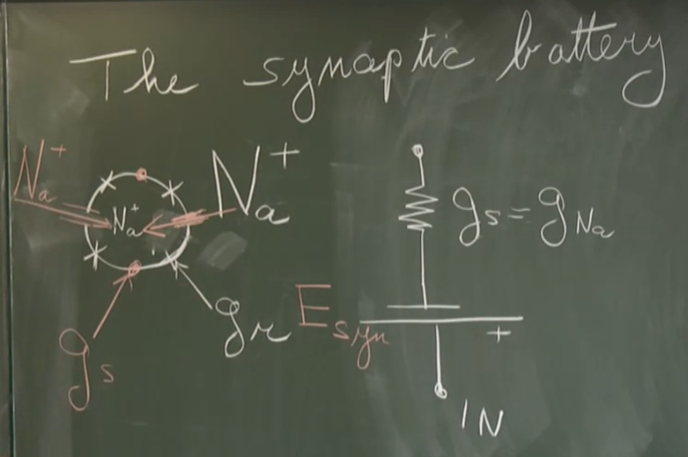 The synaptic battery
Na+
Na+
Na+
gs
gr
gs = gNa
Esyn
+
IN